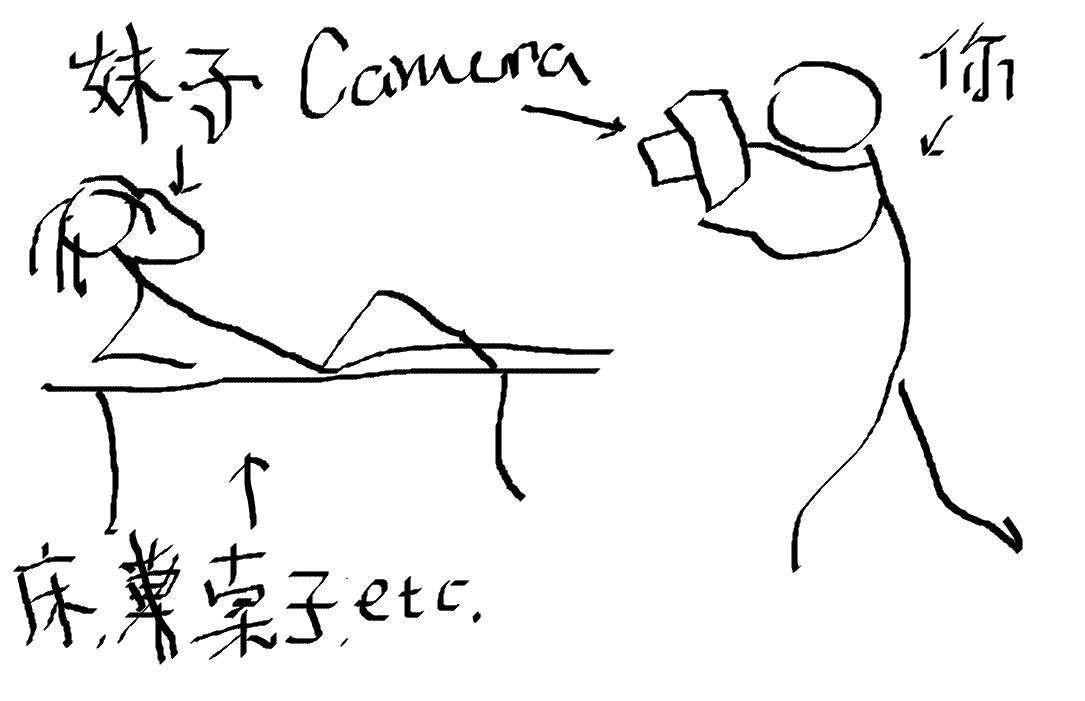 妹子 Camera 你
床, 桌子, etc.